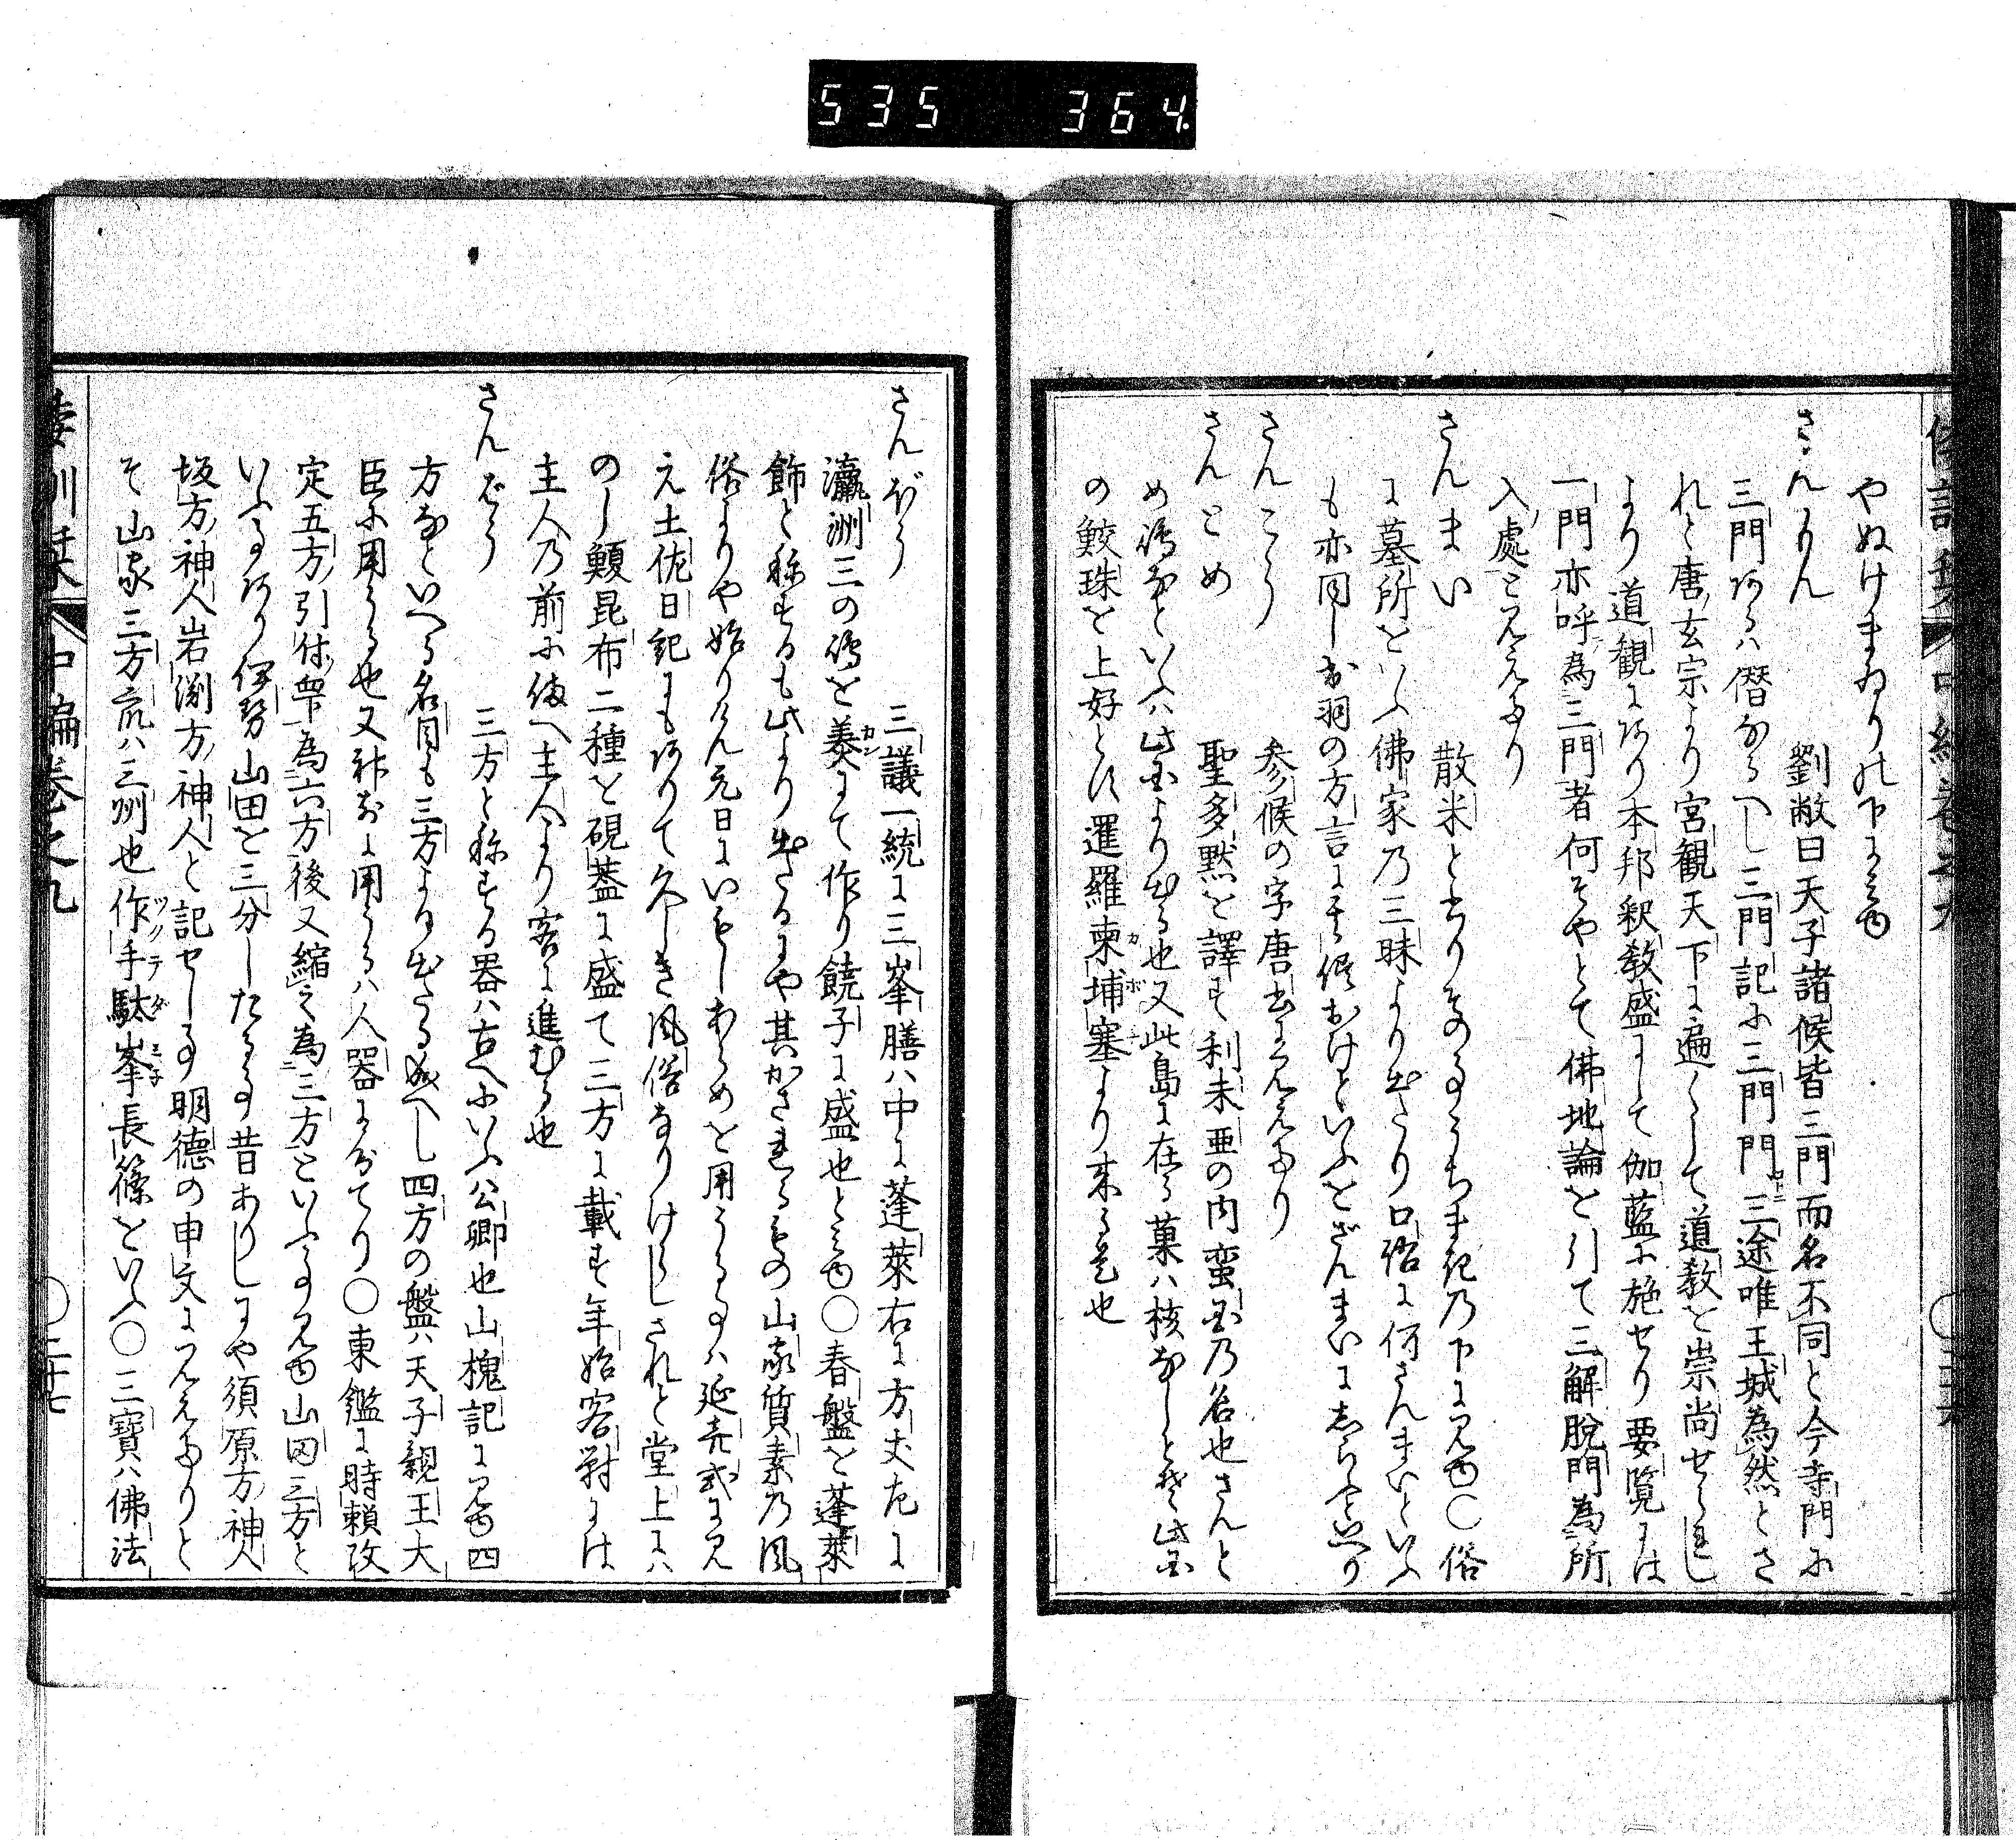 535 364
やぬけまゐりの下にみゆ
さんもん 劉敞曰天子諸候皆三門而名不同と今寺門に
三門あるハ僭なるへし三門記に三門門三途唯王城為然とさ
れと唐玄宗より宮観天下に遍くして道教を崇尚せられし
より道観にあり本邦釈教盛にして伽藍に施せり要覧には
一門亦呼為三門者何そやとて佛地論を引て三解脱門為所
入處とみえたり
さんまい 散米とかりそのことうちまきの下にみゆ○俗
に墓所をいふ佛家の三昧より出たり口語に何さんまいといふ
も亦同し出羽の方言に
さんこう 参候の字唐書にみえたり
さんとめ 聖多黙を譯す利未亜の内蛮国の名也さんと
め嶋なといふハ此国より出る也又此島に在る菓ハ核なしとそ此国
の鮫珠を上好とす暹羅柬埔塞より来る是也
倭訓栞 中編巻之九
さんぼう 三議一統に三峯膳ハ中に蓬萊右に方丈左に
瀛洲三の嶋を羹にて作り饒子に盛也とみゆ○春盤を蓬萊
飾と称するも此より出たるにや其かさねるもの山家質素の風
俗よりや始りけん元日にいもしあらめを用うる事ハ延喜式にみ
え土佐日記にもありて久しき風俗なりけらしされと堂上にハ
のし顆昆布二種を硯蓋に盛て三方に載す年始客対には
主人の前に備へ主人より客に進むる也
さんぼう 三方と称する器ハ古へにいふ公卿也山槐記にみゆ四
方なといへる名目も三方より出たる成へし四方の盤ハ天子親王大
臣に用うる也又神前に用うるハ人器にならてり○東鑑に時頼改
定五方引付衆為六方後又縮之為三方といふ事みゆ山田三方と
いふ事あり伊勢山田を三分したる事昔ありしにや須原方神人
坂方神人岩渕方神人と記せし事明徳の申文にみえたりと
そ山家三方衆ハ三州也作手駄峯長篠をいへ○三寶ハ佛法
倭訓栞 中編巻之九 ○二十七